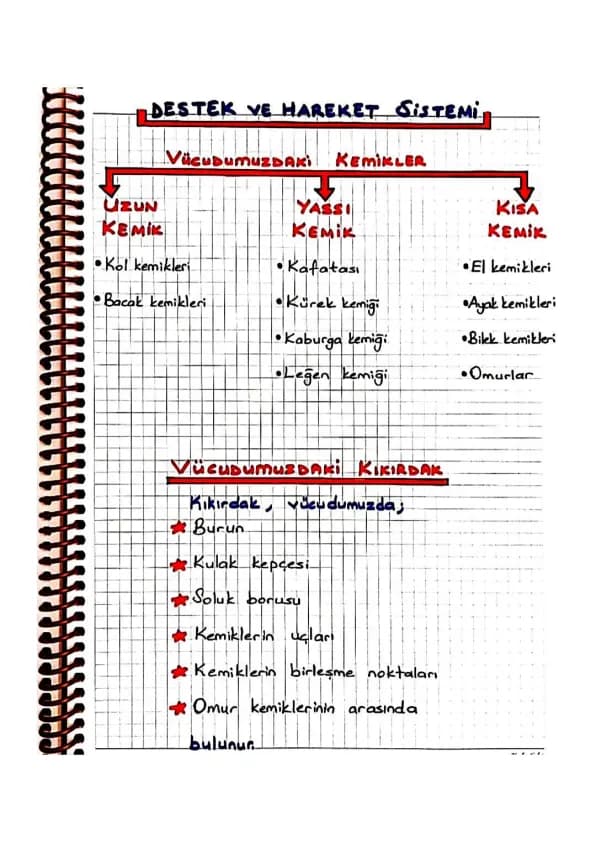 DESTEK VE HAREKET SİSTEMİ
VÜCUDUMUZDAKİ KEMİKLER
UZUN KEMİK
• Kol kemikleri
• Bacak kemikleri
YASSI KEMİK
• Kafatası
• Kürek kemiği
• Kaburga kemiği
• Leğen kemiği
KISA KEMİK
• El kemikleri
• Ayak kemikleri
• Bilek kemikleri
• Omurlar
VÜCUDUMUZDAKİ KIKIRDAK
Kıkırdak, vücudumuzda;
★ Burun
★ Kulak kepçesi
★ Soluk borusu
★ Kemiklerin uçları
★ Kemiklerin birleşme noktaları
★ Omur kemiklerinin arasında
bulunur.